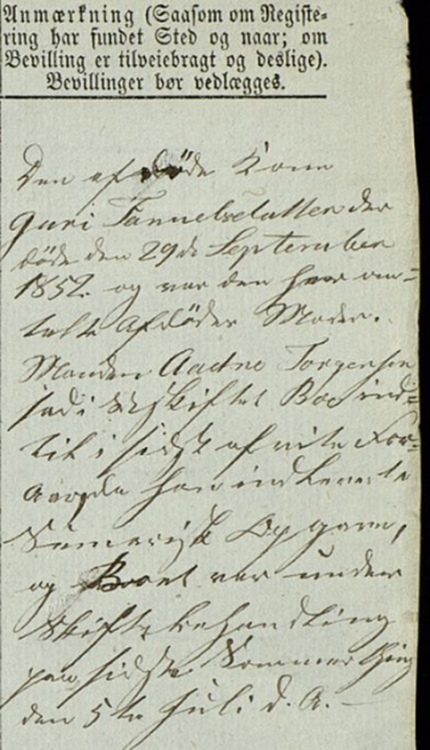 Anmærkning (Saasom om Registe-
ring har fundet Sted og naar; om
Bevilling er tilveiebragt og deslige).
Bevillinger bør vedlægges.
Den afdøde Kone
Guri Samuelsdatter der
døde den 29de September
1852. og var den her om-
talte Afdødes Moder.
Manden Aadne Torgersen
sad i uskiftet Boe ind-
til i sidst af vite For-
han indleverte
Summarisk Opgave,
og Boet var under
Skiftebehandling
paa sidste Sommerthing
den 5te Juli d. A. —